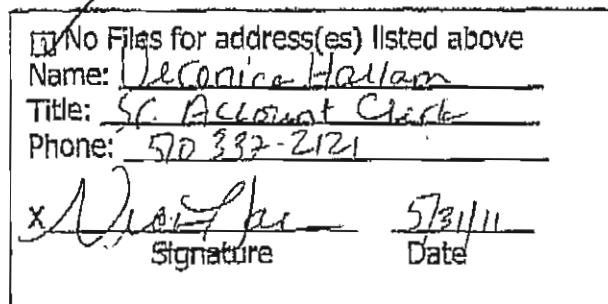 No Files for address(es) listed above
Name: Veronica Hallam
Title: Sr. Account Clerk
Phone: 510 337-2121
X 5/31/11
Signature Date